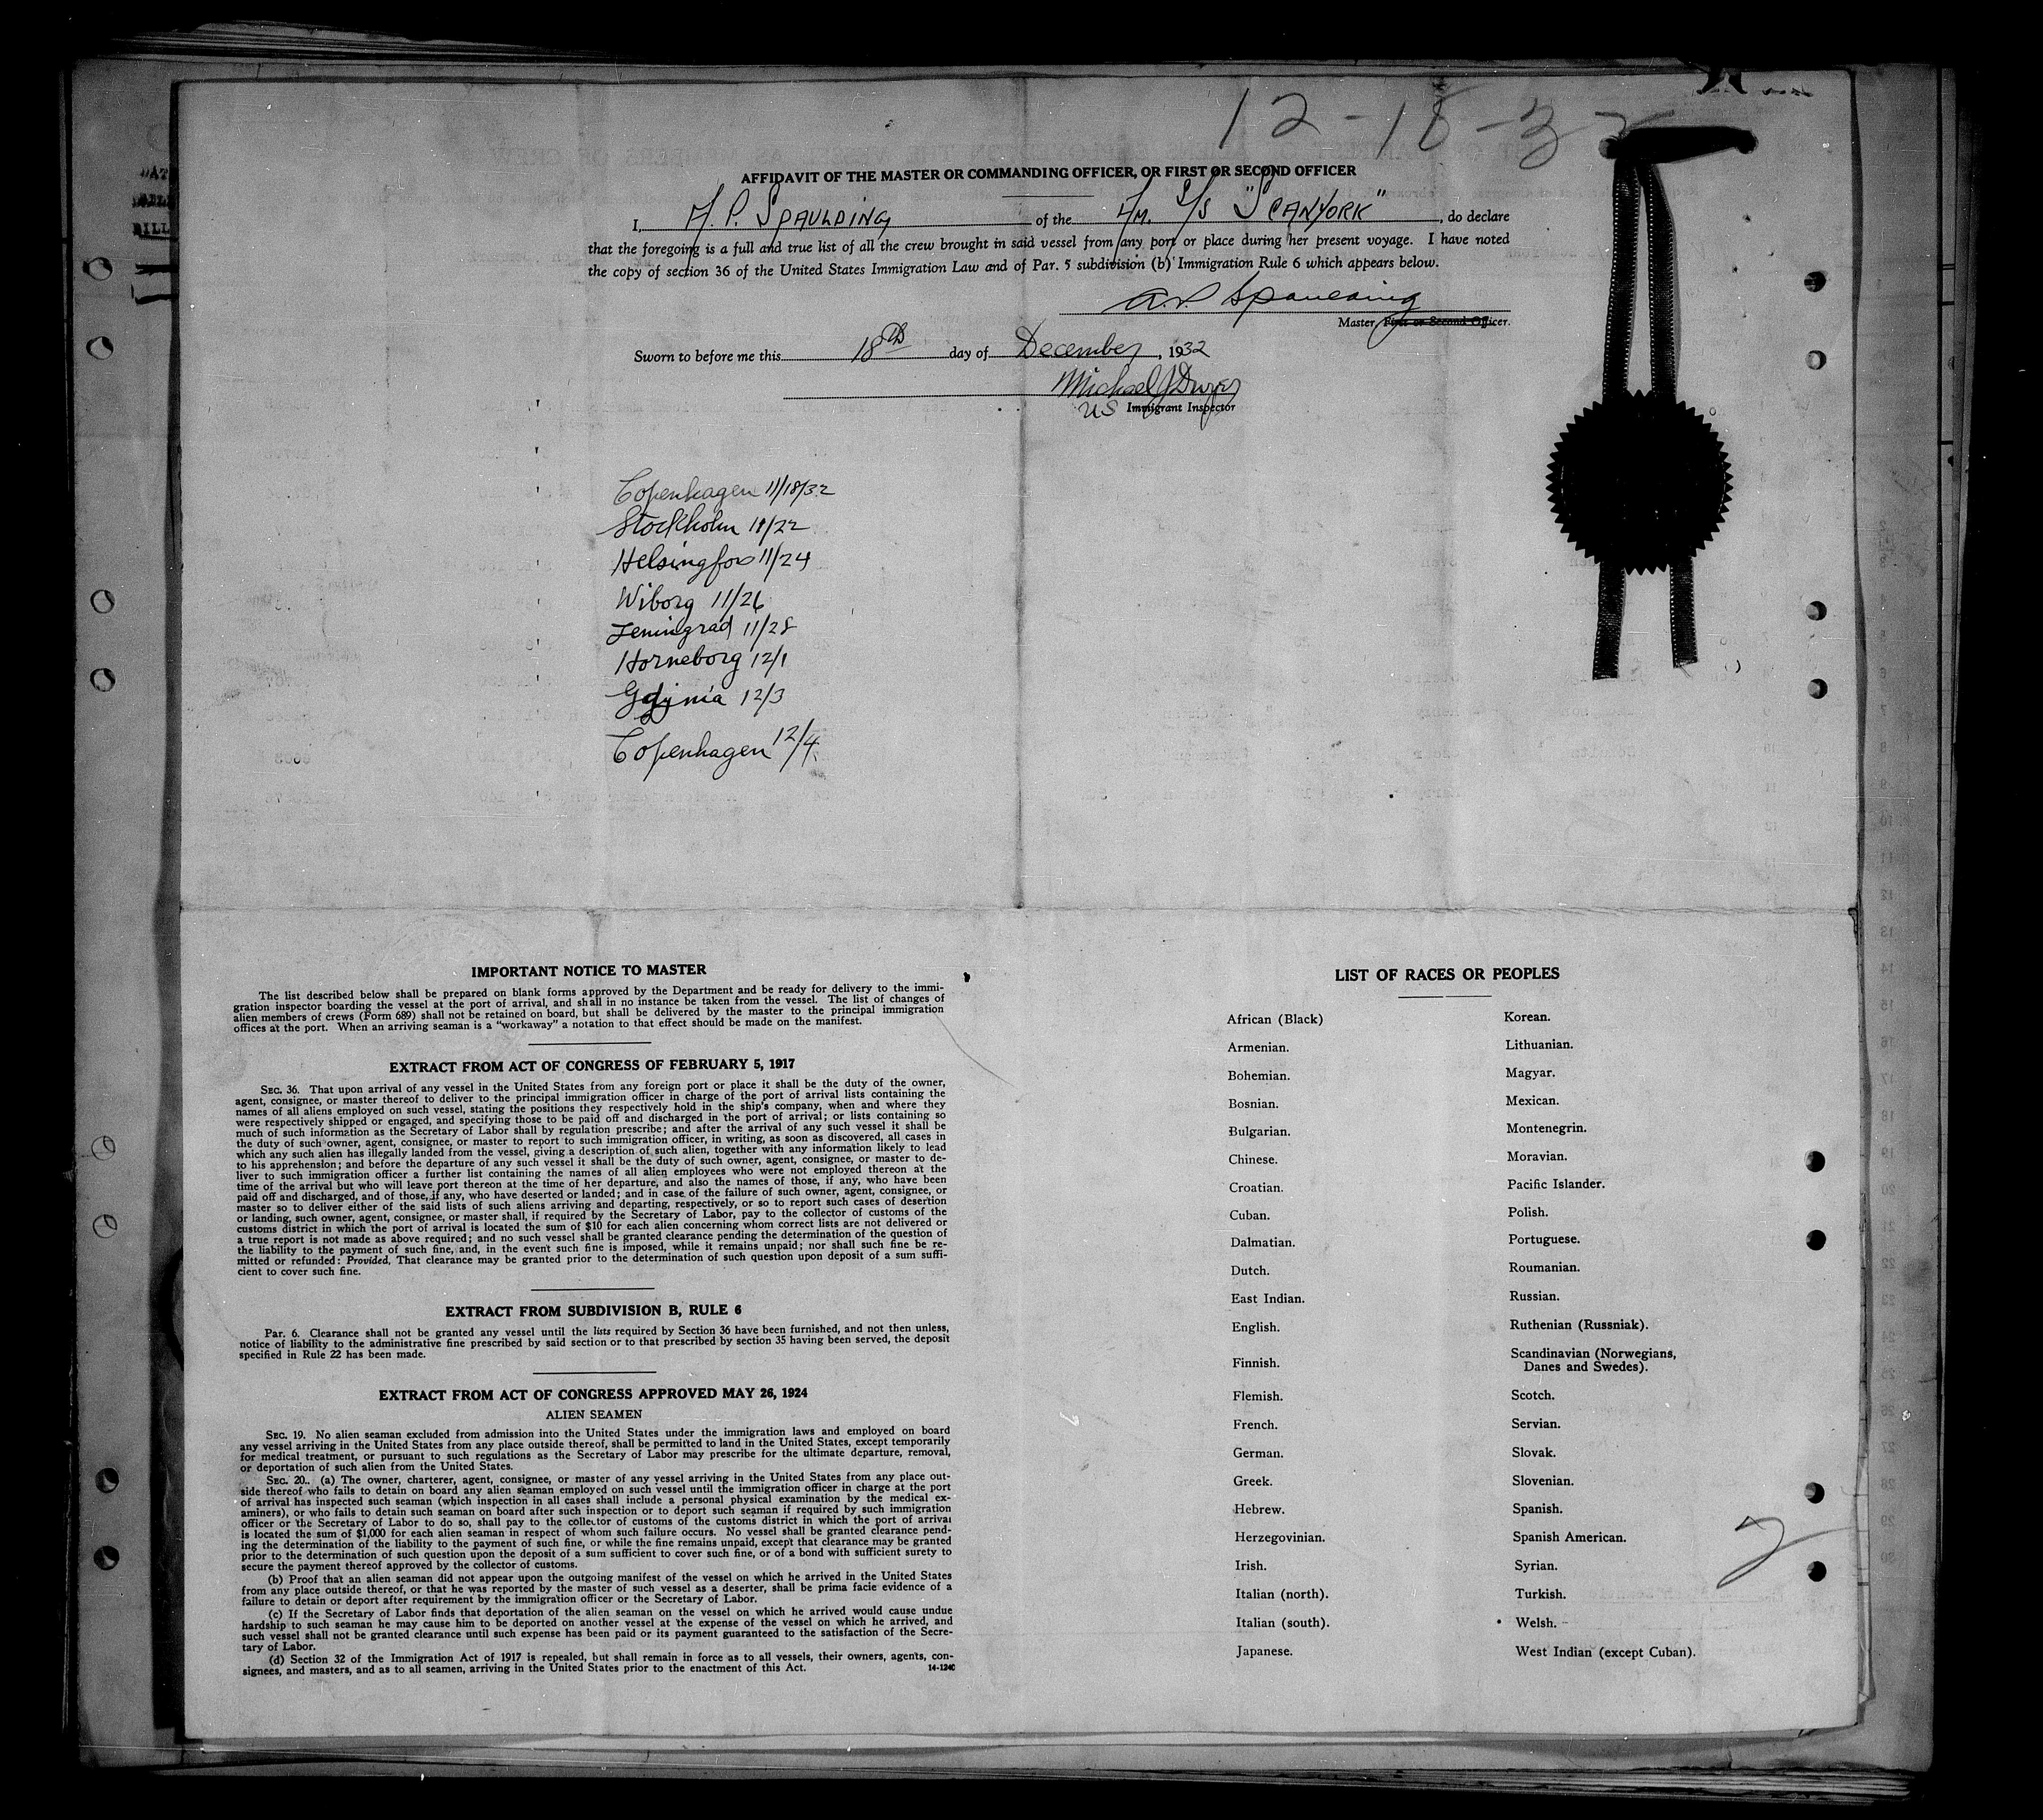 12-18-32
AFFIDAVIT OF THE MASTER OR COMMANDING OFFICER, OR FIRST OR SECOND OFFICER
I, A. P. SPAULDING of the A/M. S/S "SCANYORK", do declare
that the foregoing is a full and true list of all the crew brought in said vessel from any port or place during her present voyage. I have noted
the copy of section 36 of the United States Immigration Law and of Par. 5 subdivision (b) Immigration Rule 6 which appears below.
A.P. Spaulding
Master, First or Second Officer.
Sworn to before me this 18th day of December, 1932
Michael J Dwyer
US Immigrant Inspector
Copenhagen 11/18/32
Stockholm 11/22
Helsingfos 11/24
Wiborg 11/26
Leningrad 11/28
Horneborg 12/1
Gdynia 12/3
Copenhagen 12/4
IMPORTANT NOTICE TO MASTER
The list described below shall be prepared on blank forms approved by the Department and be ready for delivery to the immi-
gration inspector boarding the vessel at the port of arrival, and shall in no instance be taken from the vessel. The list of changes of
alien members of crews (Form 689) shall not be retained on board, but shall be delivered by the master to the principal immigration
offices at the port. When an arriving seaman is a "workaway" a notation to that effect should be made on the manifest.
EXTRACT FROM ACT OF CONGRESS OF FEBRUARY 5, 1917
SEC. 36. That upon arrival of any vessel in the United States from any foreign port or place it shall be the duty of the owner,
agent, consignee, or master thereof to deliver to the principal immigration officer in charge of the port of arrival lists containing the
names of all aliens employed on such vessel, stating the positions they respectively hold in the ship's company, when and where they
were respectively shipped or engaged, and specifying those to be paid off and discharged in the port of arrival; or lists containing so
much of such information as the Secretary of Labor shall by regulation prescribe; and after the arrival of any such vessel it shall be
the duty of such owner, agent, consignee, or master to report to such immigration officer, in writing, as soon as discovered, all cases in
which any such alien has illegally landed from the vessel, giving a description of such alien, together with any information likely to lead
to his apprehension; and before the departure of any such vessel it shall be the duty of such owner, agent, consignee, or master to de-
liver to such immigration officer a further list containing the names of all alien employees who were not employed thereon at the
time of the arrival but who will leave port thereon at the time of her departure, and also the names of those, if any, who have been
paid off and discharged, and of those, if any, who have deserted or landed; and in case of the failure of such owner, agent, consignee, or
master so to deliver either of the said lists of such aliens arriving and departing, respectively, or so to report such cases of desertion
or landing, such owner, agent, consignee, or master shall, if required by the Secretary of Labor, pay to the collector of customs of the
customs district in which the port of arrival is located the sum of $10 for each alien concerning whom correct lists are not delivered or
a true report is not made as above required; and no such vessel shall be granted clearance pending the determination of the question of
the liability to the payment of such fine, and, in the event such fine is imposed, while it remains unpaid; nor shall such fine be re-
mitted or refunded: Provided, That clearance may be granted prior to the determination of such question upon deposit of a sum suffi-
cient to cover such fine.
EXTRACT FROM SUBDIVISION B, RULE 6
Par. 6. Clearance shall not be granted any vessel until the lists required by Section 36 have been furnished, and not then unless,
notice of liability to the administrative fine prescribed by said section or to that prescribed by section 35 having been served, the deposit
specified in Rule 22 has been made.
EXTRACT FROM ACT OF CONGRESS APPROVED MAY 26, 1924
ALIEN SEAMEN
SEC. 19. No alien seaman excluded from admission into the United States under the immigration laws and employed on board
any vessel arriving in the United States from any place outside thereof, shall be permitted to land in the United States, except temporarily
for medical treatment, or pursuant to such regulations as the Secretary of Labor may prescribe for the ultimate departure, removal,
or deportation of such alien from the United States.
SEC. 20. (a) The owner, charterer, agent, consignee, or master of any vessel arriving in the United States from any place out-
side thereof who fails to detain on board any alien seaman employed on such vessel until the immigration officer in charge at the port
of arrival has inspected such seaman (which inspection in all cases shall include a personal physical examination by the medical ex-
aminers), or who fails to detain such seaman on board after such inspection or to deport such seaman if required by such immigration
officer or the Secretary of Labor to do so, shall pay to the collector of customs of the customs district in which the port of arrival
is located the sum of $1,000 for each alien seaman in respect of whom such failure occurs. No vessel shall be granted clearance pend-
ing the determination of the liability to the payment of such fine, or while the fine remains unpaid, except that clearance may be granted
prior to the determination of such question upon the deposit of a sum sufficient to cover such fine, or of a bond with sufficient surety to
secure the payment thereof approved by the collector of customs.
(b) Proof that an alien seaman did not appear upon the outgoing manifest of the vessel on which he arrived in the United States
from any place outside thereof, or that he was reported by the master of such vessel as a deserter, shall be prima facie evidence of a
failure to detain or deport after requirement by the immigration officer or the Secretary of Labor.
(c) If the Secretary of Labor finds that deportation of the alien seaman on the vessel on which he arrived would cause undue
hardship to such seaman he may cause him to be deported on another vessel at the expense of the vessel on which he arrived, and
such vessel shall not be granted clearance until such expense has been paid or its payment guaranteed to the satisfaction of the Secre-
tary of Labor.
(d) Section 32 of the Immigration Act of 1917 is repealed, but shall remain in force as to all vessels, their owners, agents, con-
signees, and masters, and as to all seamen, arriving in the United States prior to the enactment of this Act. 14-1240
LIST OF RACES OR PEOPLES
African (Black)
Armenian.
Bohemian.
Bosnian.
Bulgarian.
Chinese.
Croatian.
Cuban.
Dalmatian.
Dutch.
East Indian.
English.
Finnish.
Flemish.
French.
German.
Greek.
Hebrew.
Herzegovinian.
Irish.
Italian (north).
Italian (south).
Japanese.
Korean.
Lithuanian.
Magyar.
Mexican.
Montenegrin.
Moravian.
Pacific Islander.
Polish.
Portuguese.
Roumanian.
Russian.
Ruthenian (Russniak).
Scandinavian (Norwegians,
Danes and Swedes).
Scotch.
Servian.
Slovak.
Slovenian.
Spanish.
Spanish American.
Syrian.
Turkish.
Welsh.
West Indian (except Cuban).
2